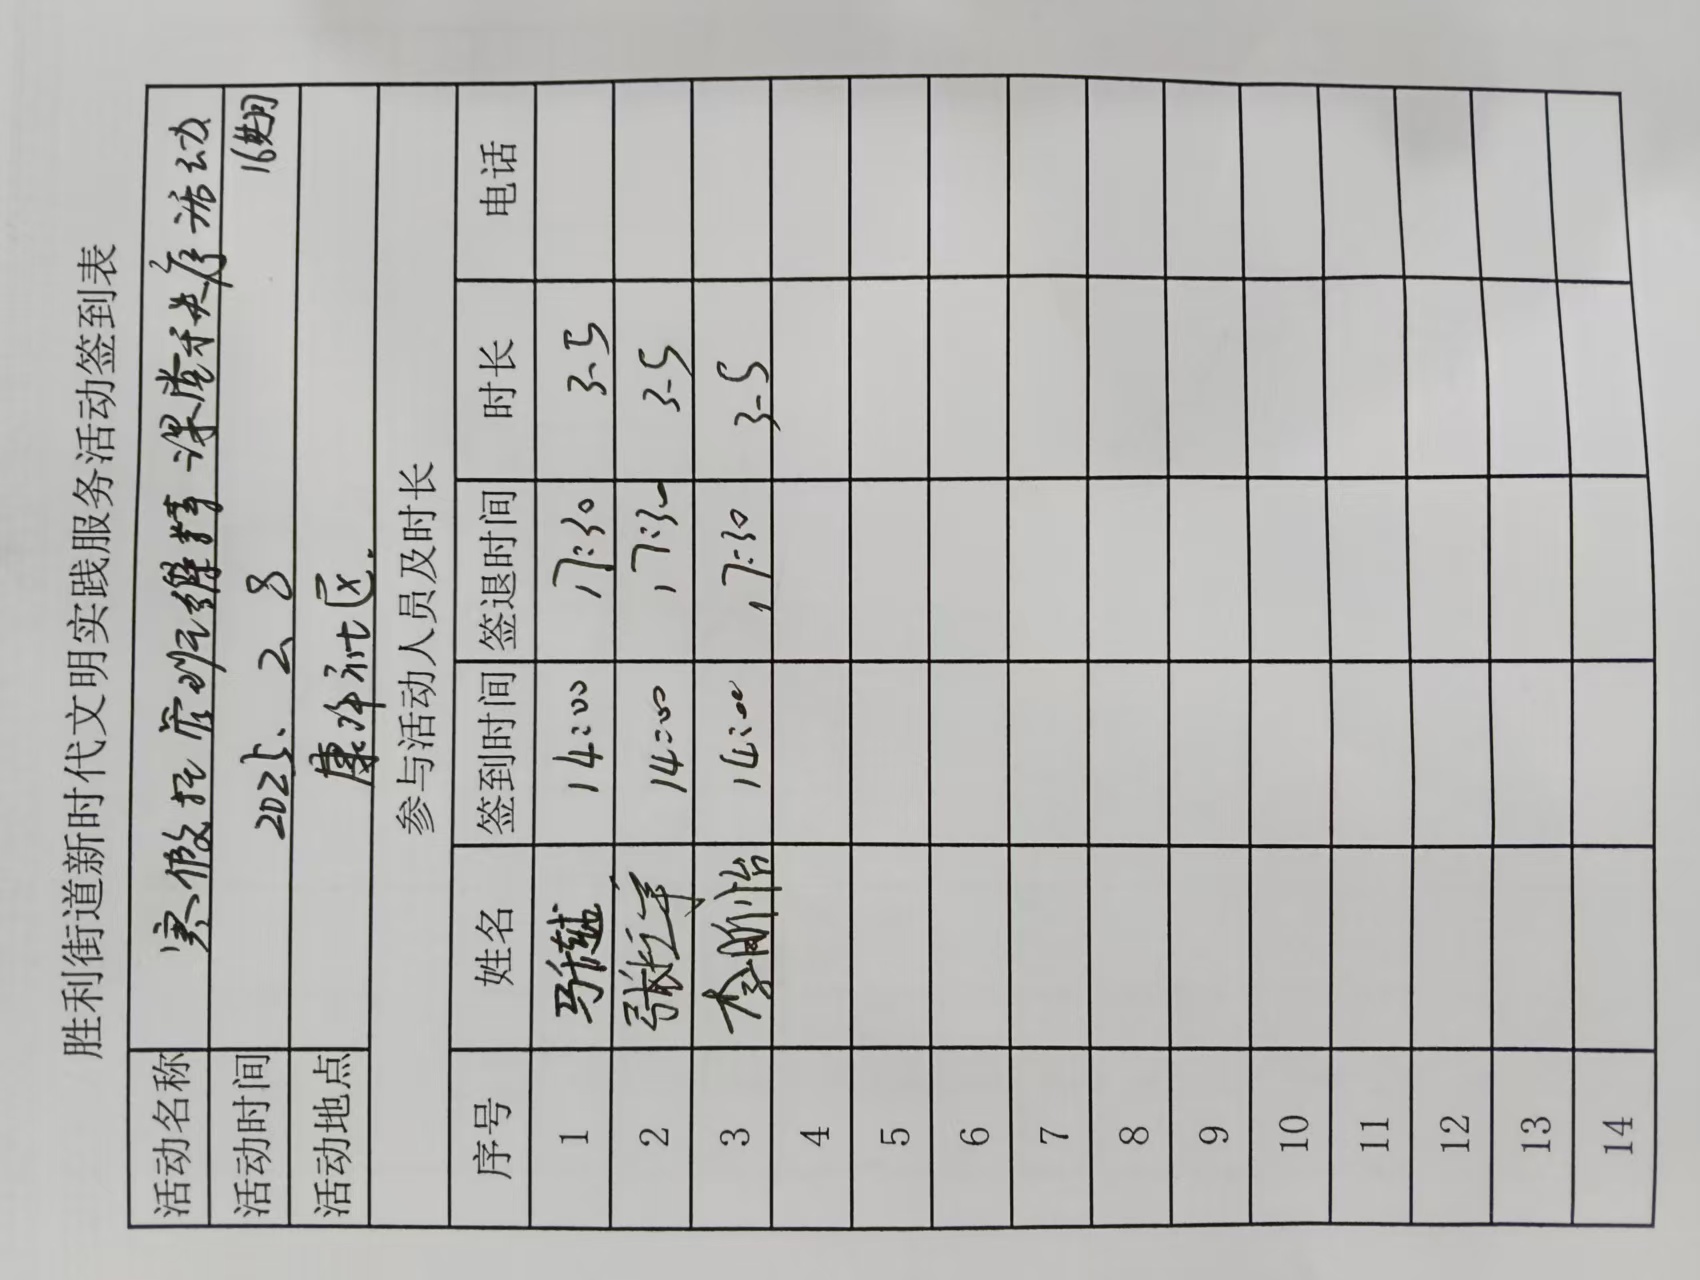 胜利街道新时代文明实践服务活动签到表
活动名称 寒假托管班维持课堂秩序活动
活动时间 2025.2.8
活动地点 康泽社区.
参与活动人员及时长
序号 姓名 签到时间 签退时间 时长 电话
1 马 14:00 17:30 3.5
2 张 14:00 17:30 3.5
3 李 怡 14:00 17:30 3.5
4
5
6
7
8
9
10
11
12
13
14